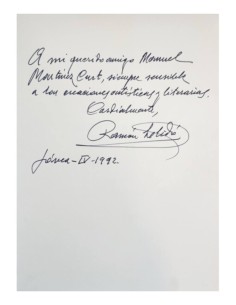 A mi querido amigo Manuel
Martínez Curt, siempre sensible
a las creaciones artísticas y literarias.
Cordialmente,
Ramon
Jávea - IV - 1992.